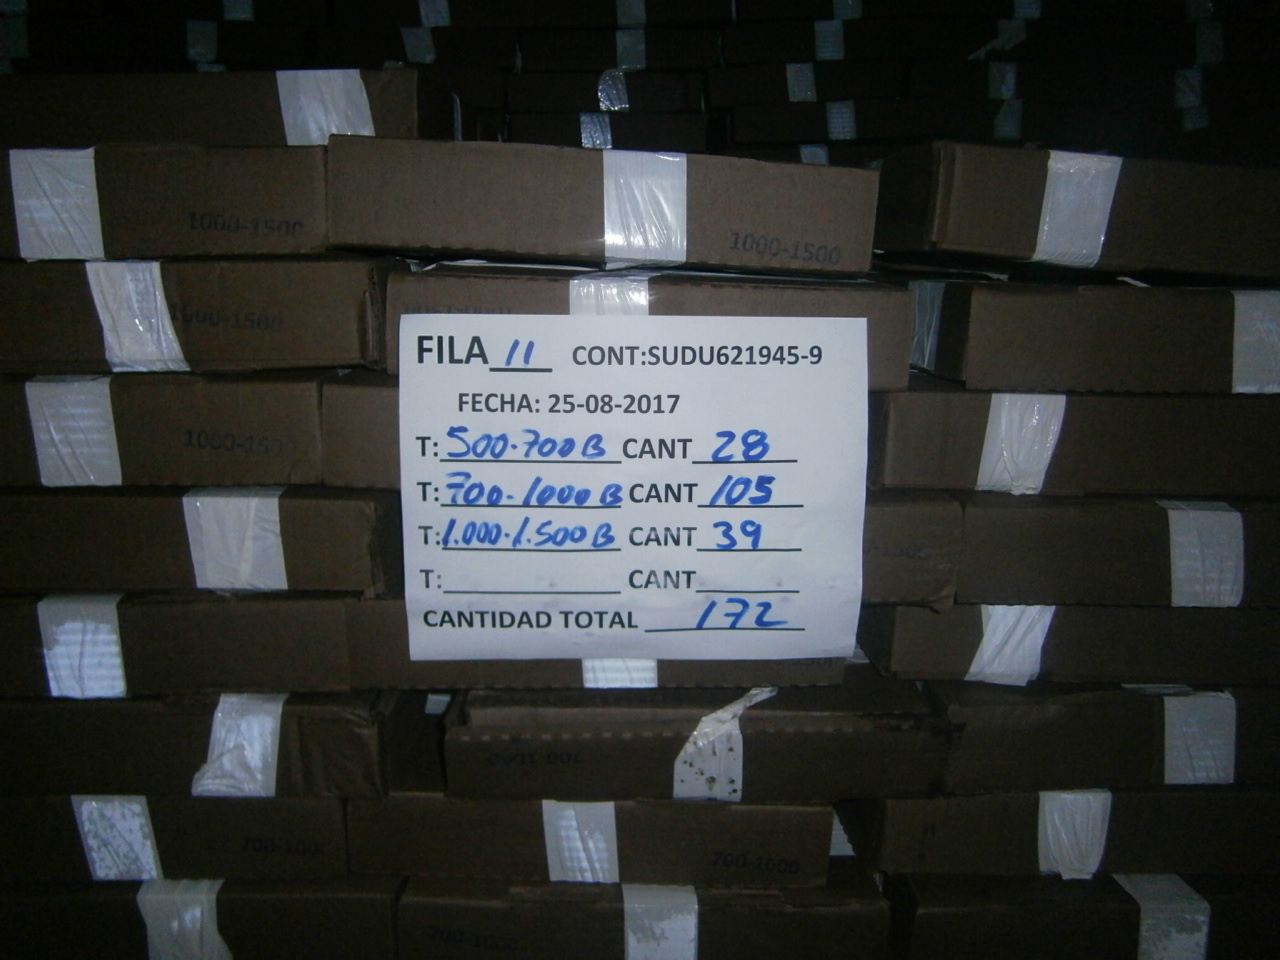 1000-1500
1000-1500
1000-1500
FILA 11 CONT:SUDU621945-9
FECHA: 25-08-2017
T: 500-700B CANT 28
T: 700-1000B CANT 105
T: 1.000-1.500B CANT 39
T: CANT
CANTIDAD TOTAL 172
700-1000
700-1000